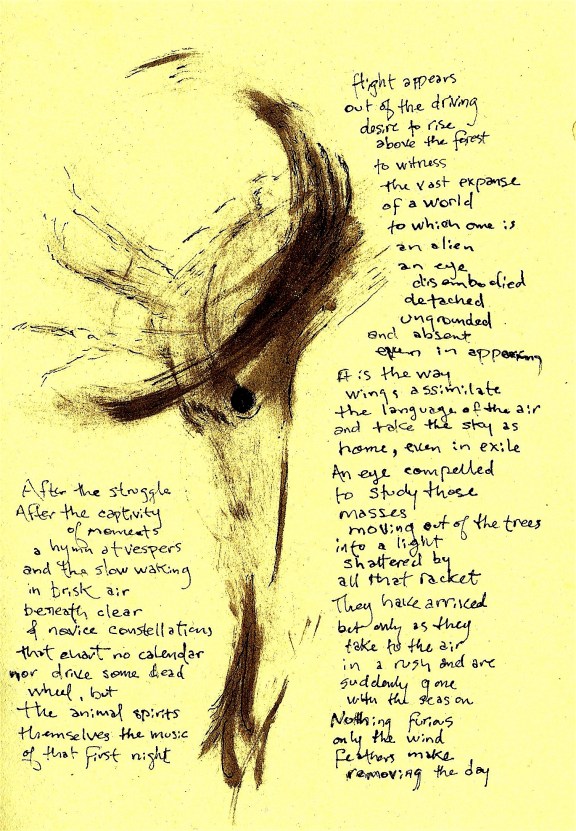 flight appears
out of the driving
desire to rise
above the forest
to witness
the vast expanse
of a world
to which one is
an alien
an eye
disembodied
detached
ungrounded
and absent
even in appearing
It is the way
wings assimilate
the language of the air
and take the sky as
home, even in exile
An eye compelled
to study those
masses
moving out of the trees
into a light
shattered by
all that racket
They have arrived
but only as they
take to the air
in a rush and are
suddenly gone
with the season
Nothing furious
only the wind
feathers make
removing the day
After the struggle
After the captivity
of moments
a hymn at vespers
and the slow waking
in brisk air
beneath clear
& novice constellations
that chart no calendar
nor drive some dead
wheel, but
the animal spirits
themselves the music
of that first night